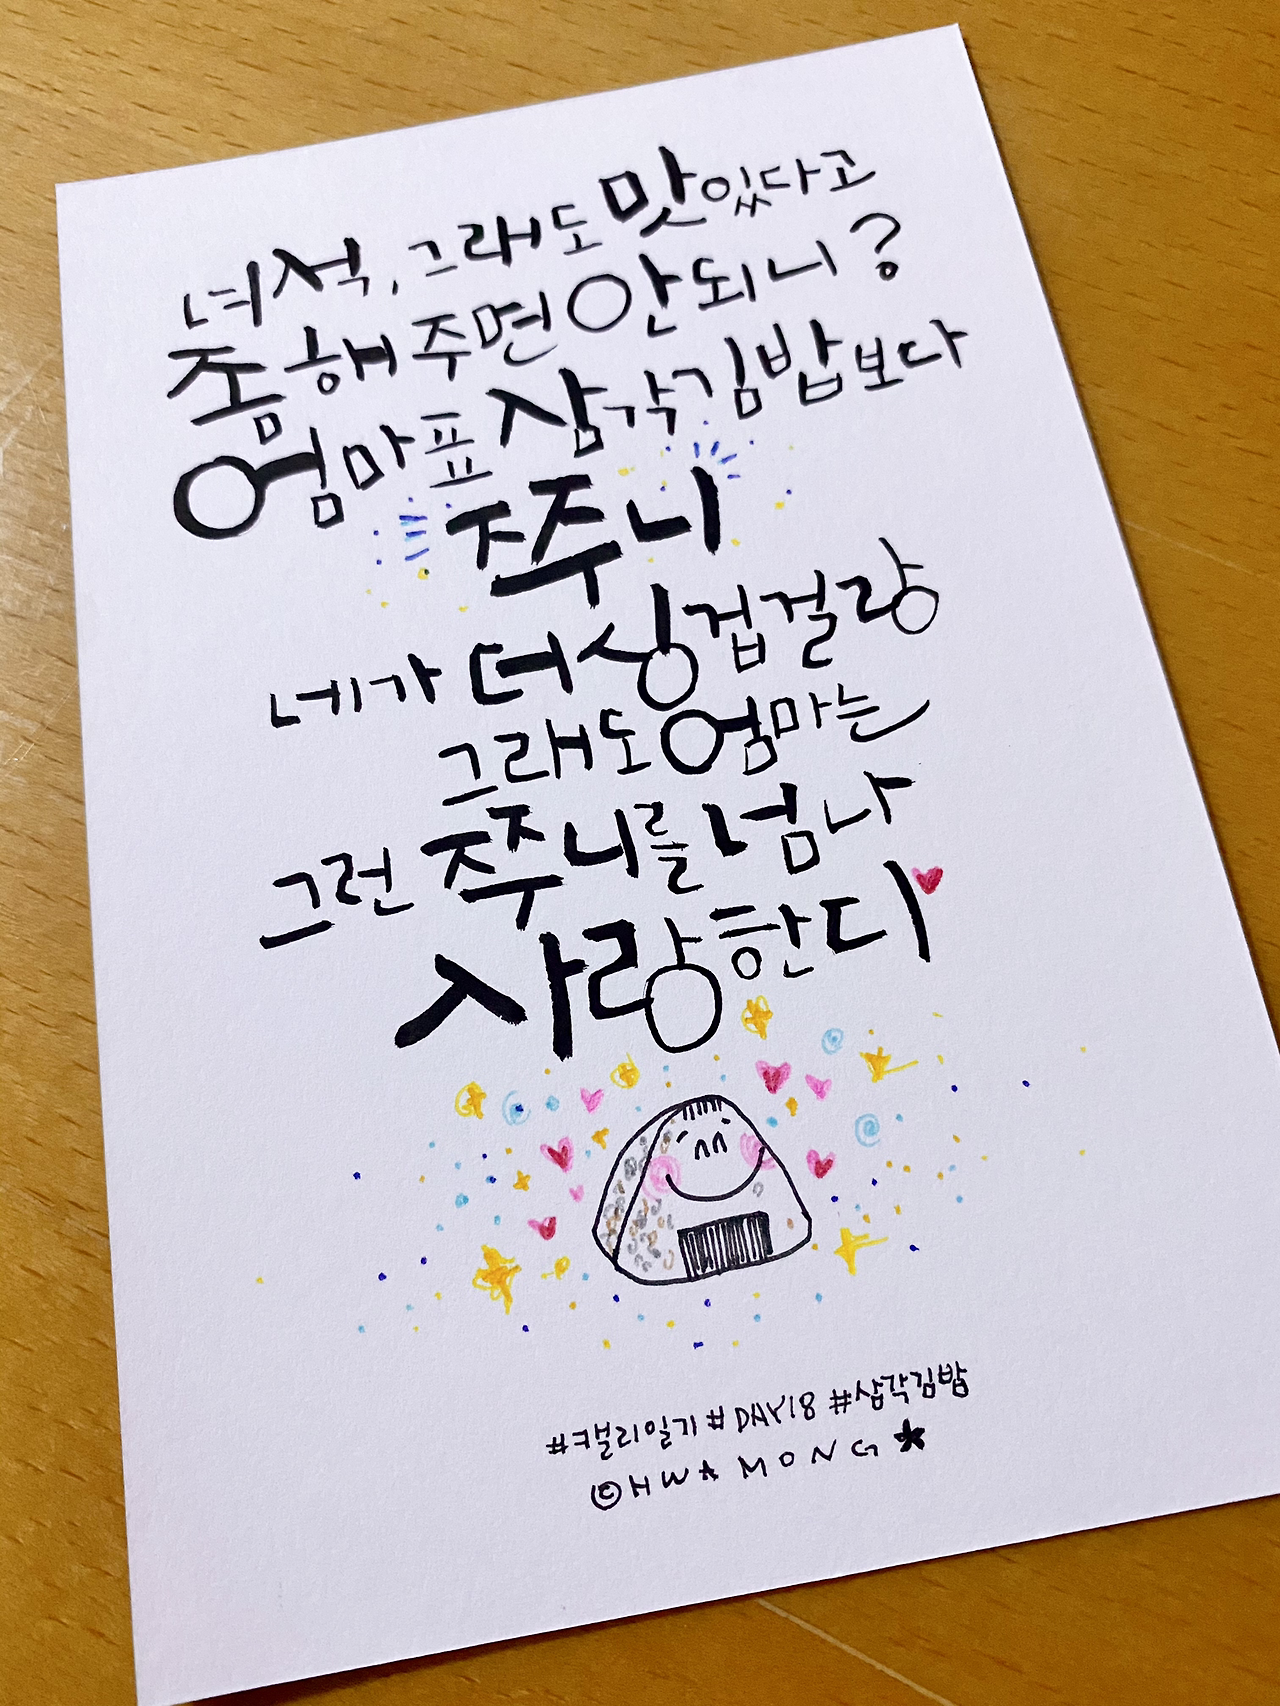 녀석, 그래도 맛있다고
좀 해주면 안되니?
엄마표 삼각김밥보다
쭈니
네가 더 싱겁걸랑
그래도 엄마는
그런 쭈니를 넘나
사랑한디
#캘리일기 #DAY18 #삼각김밥
©HWAMONG★